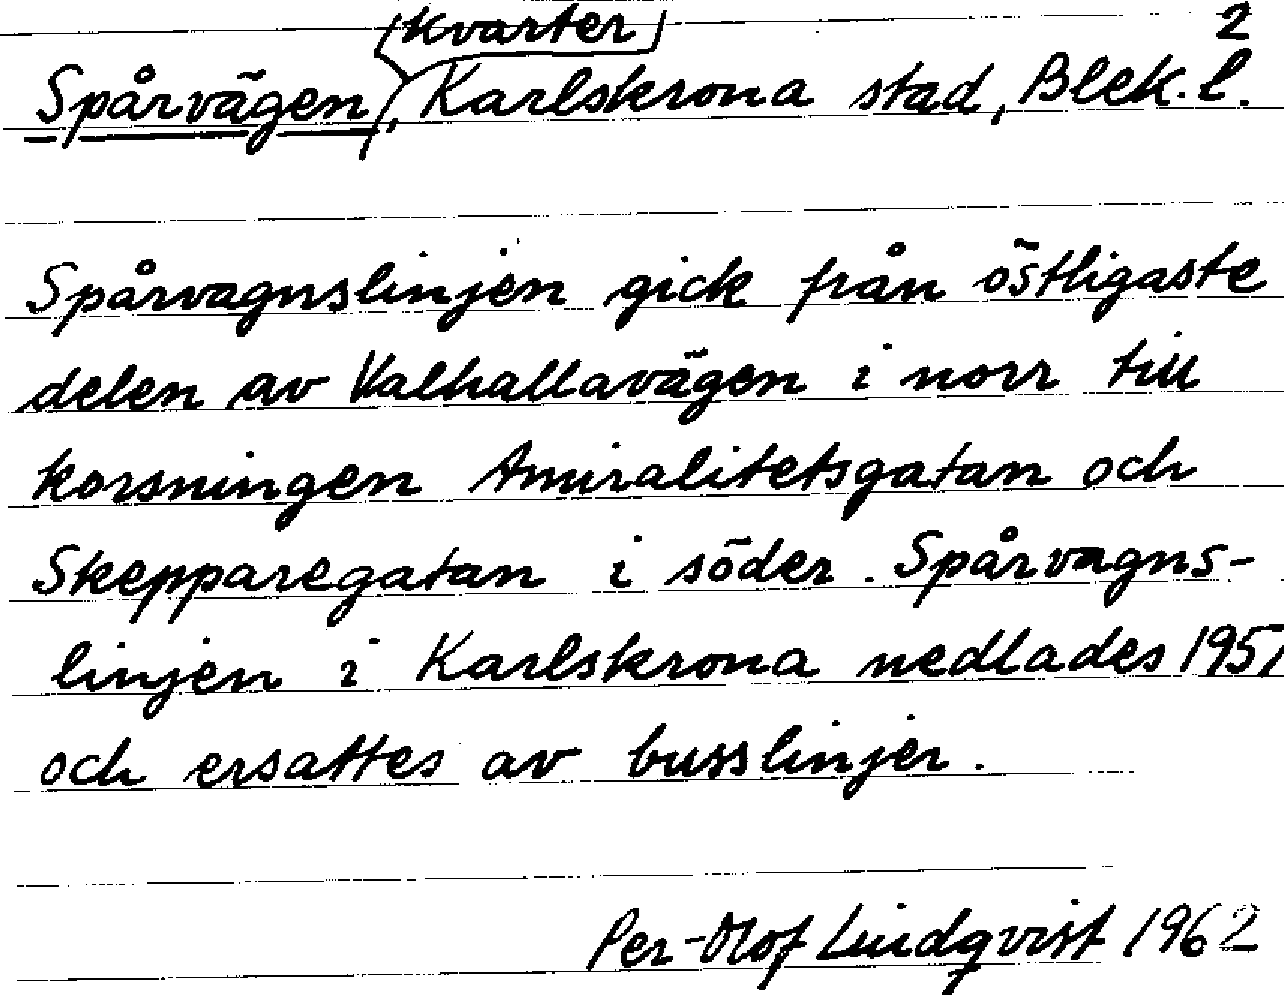 kvarter 2
Spårvägen, Karlskrona stad, Blek. l.
Spårvagnslinjen gick från östligaste
delen av Valhallavägen i norr till
korsningen Amiralitetsgatan och
Skepparegatan i söder. Spårvagns-
linjen i Karlskrona nedlades 1951
och ersattes av busslinjer.
Per-Olof Lindqvist 1962